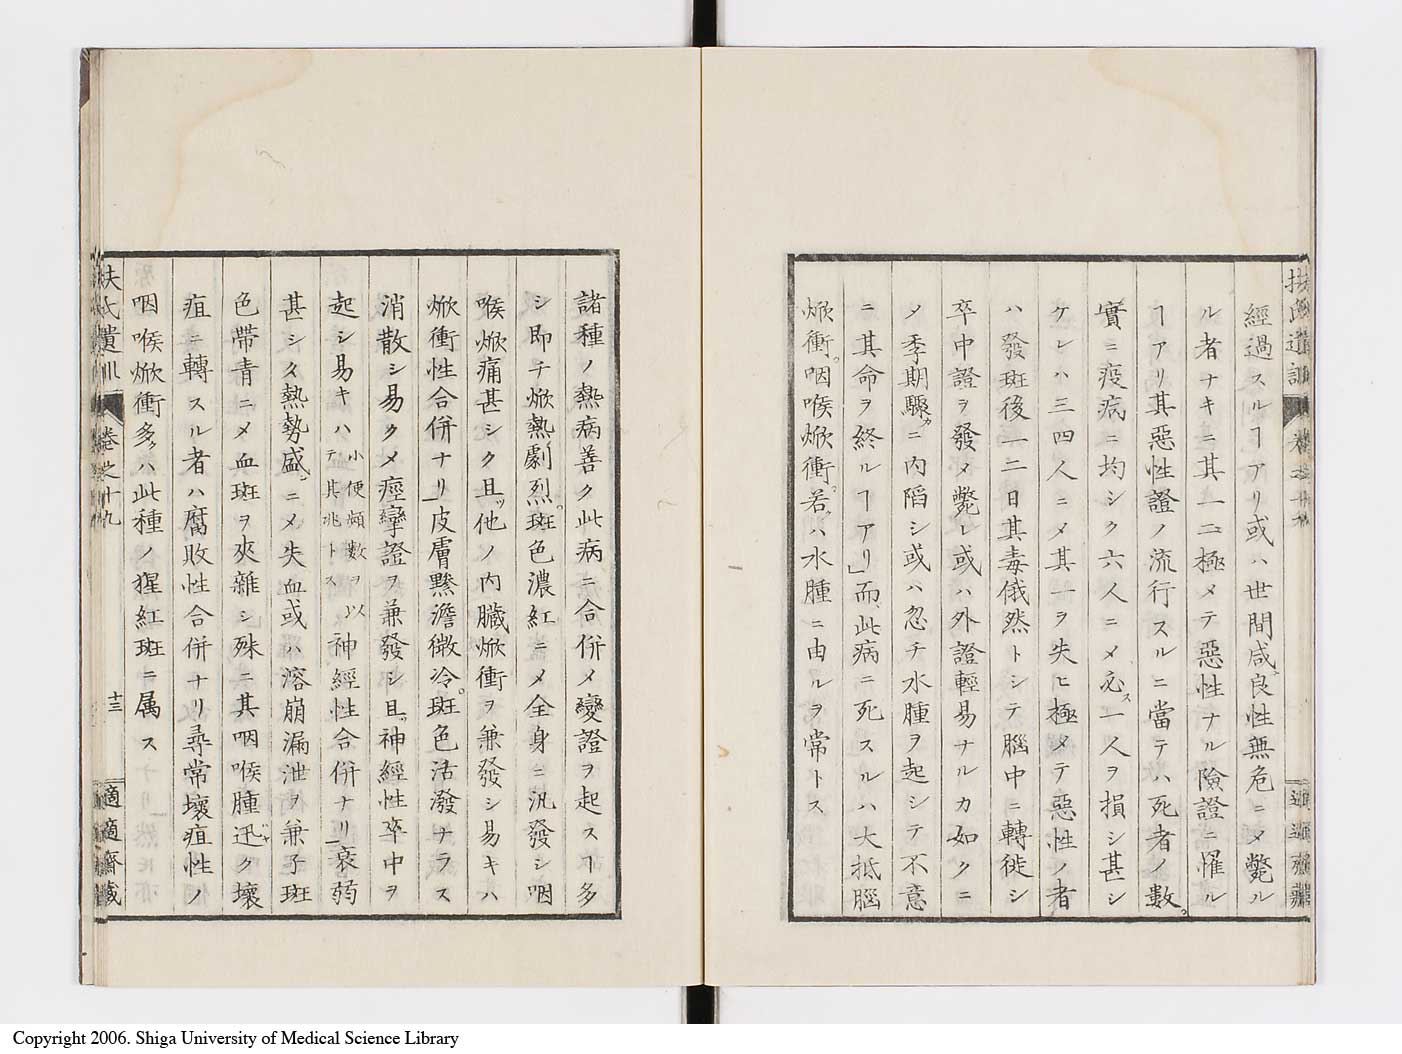 經過スルヿアリ或ハ世間咸良性無危ニメ斃ル
ル者ナキニ其一二極メテ惡性ナル險證ニ罹ル
ヿアリ其惡性證ノ流行スルニ當テハ死者ノ數。
實ニ疫病ニ均シク六人ニメ必ス一人ヲ損シ甚シ
ケレハ三四人ニメ其一ヲ失ヒ極メテ惡性ノ者
ハ發斑後一二日其毒俄然トシテ腦中ニ轉徙シ
卒中證ヲ發メ斃レ或ハ外證輕易ナルカ如クニ
メ季期驟カニ內陷シ或ハ忽チ水腫ヲ起シテ不意
ニ其命ヲ終ルヿアリ」而、此病ニ死スルハ大抵腦
焮衝。咽喉焮衝。若ハ水腫ニ由ルヲ常トス
扶氏遺訓 卷之十九 適適齋藏
諸種ノ熱病善ク此病ニ合併メ變證ヲ起スヿ多
シ即チ焮熱劇烈。斑色濃紅ニメ全身ニ汎發シ咽
喉焮痛甚シク且ツ他ノ內臟焮衝ヲ兼發シ易キハ
焮衝性合併ナリ」皮膚黲澹微冷。斑色活潑ナラス
消散シ易クメ痙攣證ヲ兼發シ且ツ神經性卒中ヲ
起シ易キハ小便頻數ヲ以テ其兆トス神經性合併ナリ」衰弱
甚シク熱勢盛ニメ失血或ハ溶崩漏泄ヲ兼子斑
色帶青ニメ血斑ヲ夾雜シ殊ニ其咽喉腫迅ク壞
疽ニ轉スル者ハ腐敗性合併ナリ尋常壞疽性ノ
咽喉焮衝多クハ此種ノ猩紅斑ニ属スナリ」然ﾄﾓ亦
扶氏遺訓 卷之十九 十三 適適齋藏
Copyright 2006. Shiga University of Medical Science Library